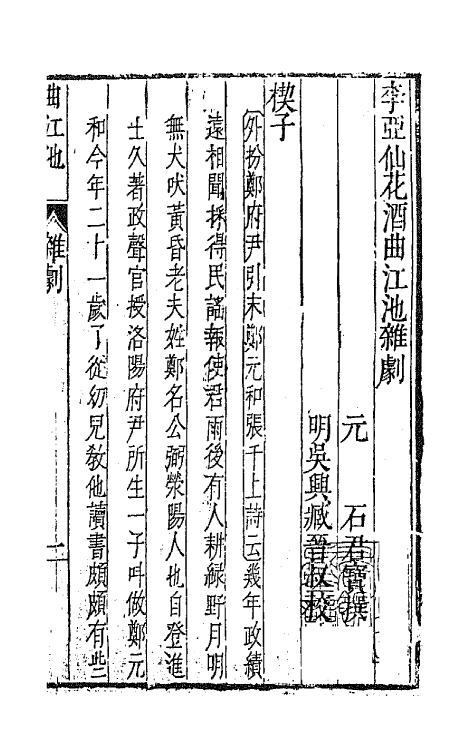 李亞仙花酒曲江池雜劇
元 石君寶撰
明吳興臧晉叔校
楔子
外扮鄭府尹引末鄭元和張千上詩云幾年政績
遠相聞採得民謠報使君雨後有人耕綠野月明
無犬吠黃昏老夫姓鄭名公弼滎陽人也自登進
士久著政聲官授洛陽府尹所生一子叫做鄭元
和今年二十一歲了從幼兒教他讀書頗頗有些
曲江池 雜劇